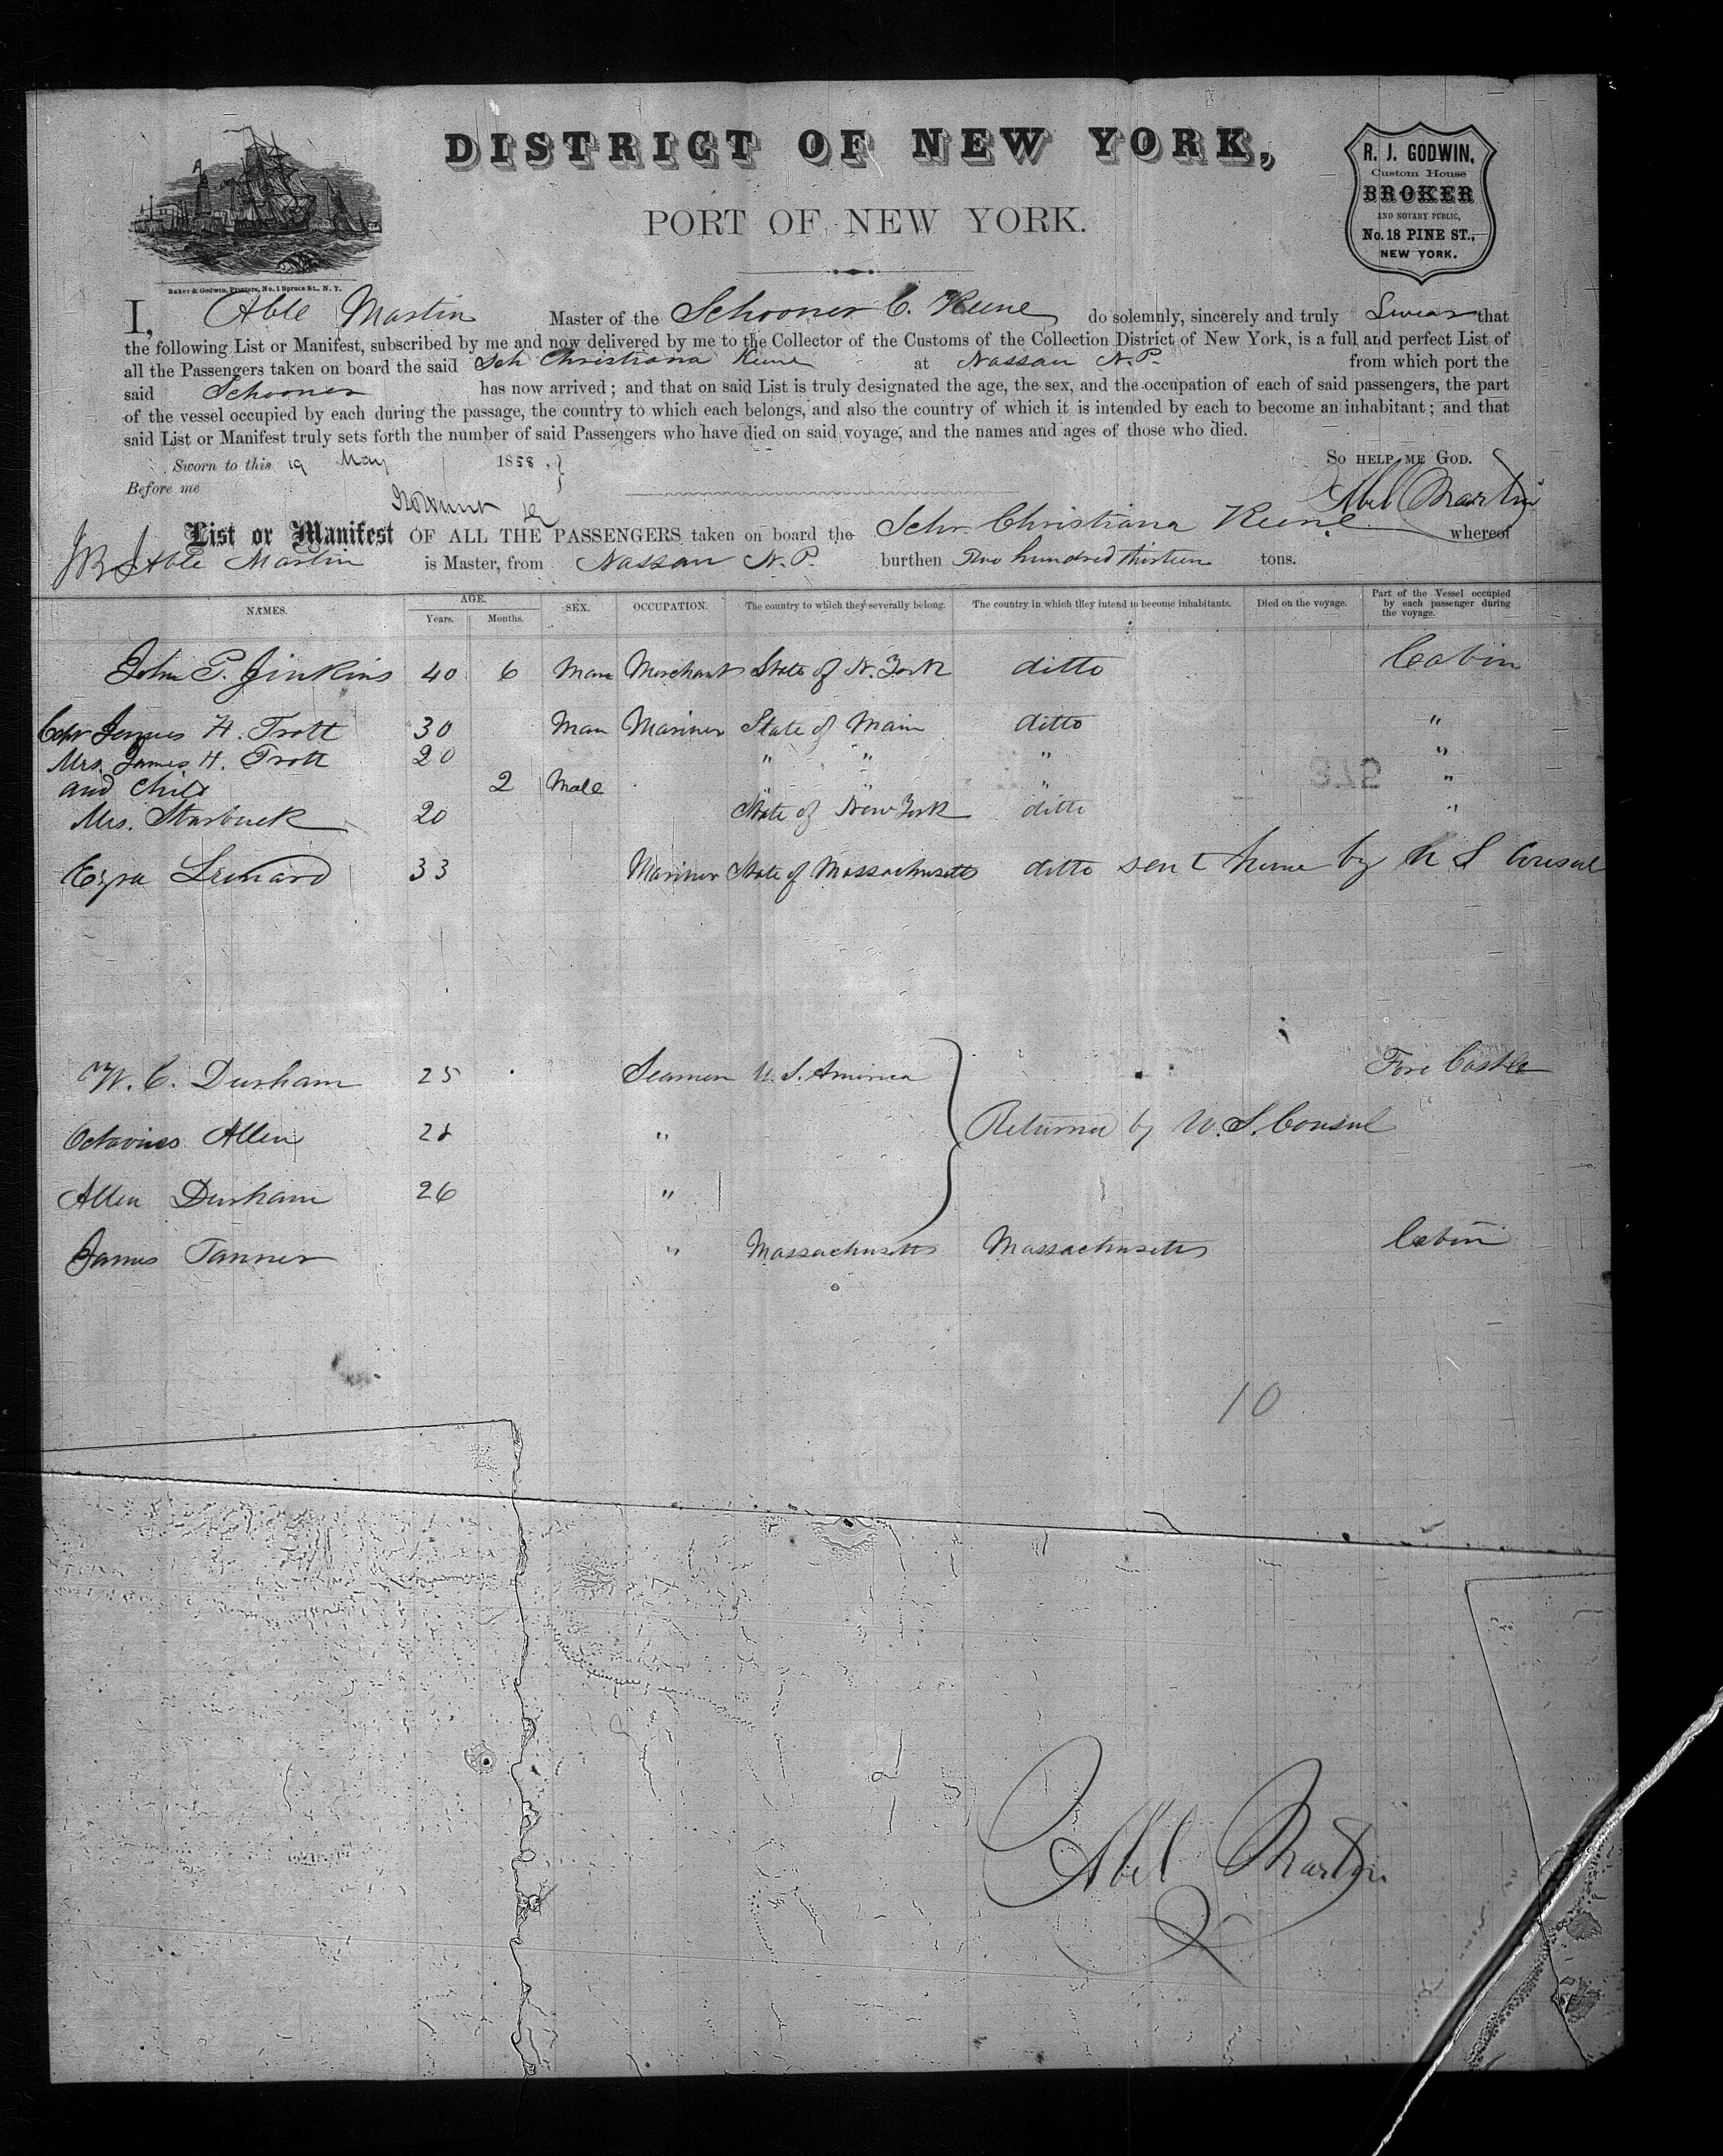 DISTRICT OF NEW YORK,
PORT OF NEW YORK.
R. J. GODWIN,
Custom House
BROKER
AND NOTARY PUBLIC,
No. 18 PINE ST.,
NEW YORK.
Baker & Godwin, Printers, No. 1 Spruce St., N. Y.
I, Able Martin Master of the Schooner C. Keene do solemnly, sincerely and truly Swear that
the following List or Manifest, subscribed by me and now delivered by me to the Collector of the Customs of the Collection District of New York, is a full and perfect List of
all the Passengers taken on board the said Sch Christiana Keene at Nassau N. P. from which port the
said Schooner has now arrived; and that on said List is truly designated the age, the sex, and the occupation of each of said passengers, the part
of the vessel occupied by each during the passage, the country to which each belongs, and also the country of which it is intended by each to become an inhabitant; and that
said List or Manifest truly sets forth the number of said Passengers who have died on said voyage, and the names and ages of those who died.
Sworn to this 19 May 1858. So help me God.
Before me Abel Martin
List or Manifest OF ALL THE PASSENGERS taken on board the Schr Christiana Keene whereof
Able Martin is Master, from Nassau N. P. burthen Two hundred thirteen tons.
NAMES. AGE. Years. Months. SEX. OCCUPATION. The country to which they severally belong. The country in which they intend to become inhabitants. Died on the voyage. Part of the Vessel occupied by each passenger during the voyage.
John P. Jinkins 40 6 Man Merchant State of N. York ditto Cabin
James H. Trott 30 Man Mariner State of Main ditto "
Mrs. James H. Trott 20 " " " "
and Child 2 Male " " " "
Mrs. Starbuck 20 State of New York ditto "
Ezra Lenard 33 Mariner State of Massachusetts ditto sent home by U S Consul
W. C. Durham 25 Seamen U. S. America Fore Castle
Octavius Allen 28 " Returned by U. S. Consul
Allen Durham 26 "
James Tanner " Massachusetts Massachusetts Cabin
10
Abel Martin